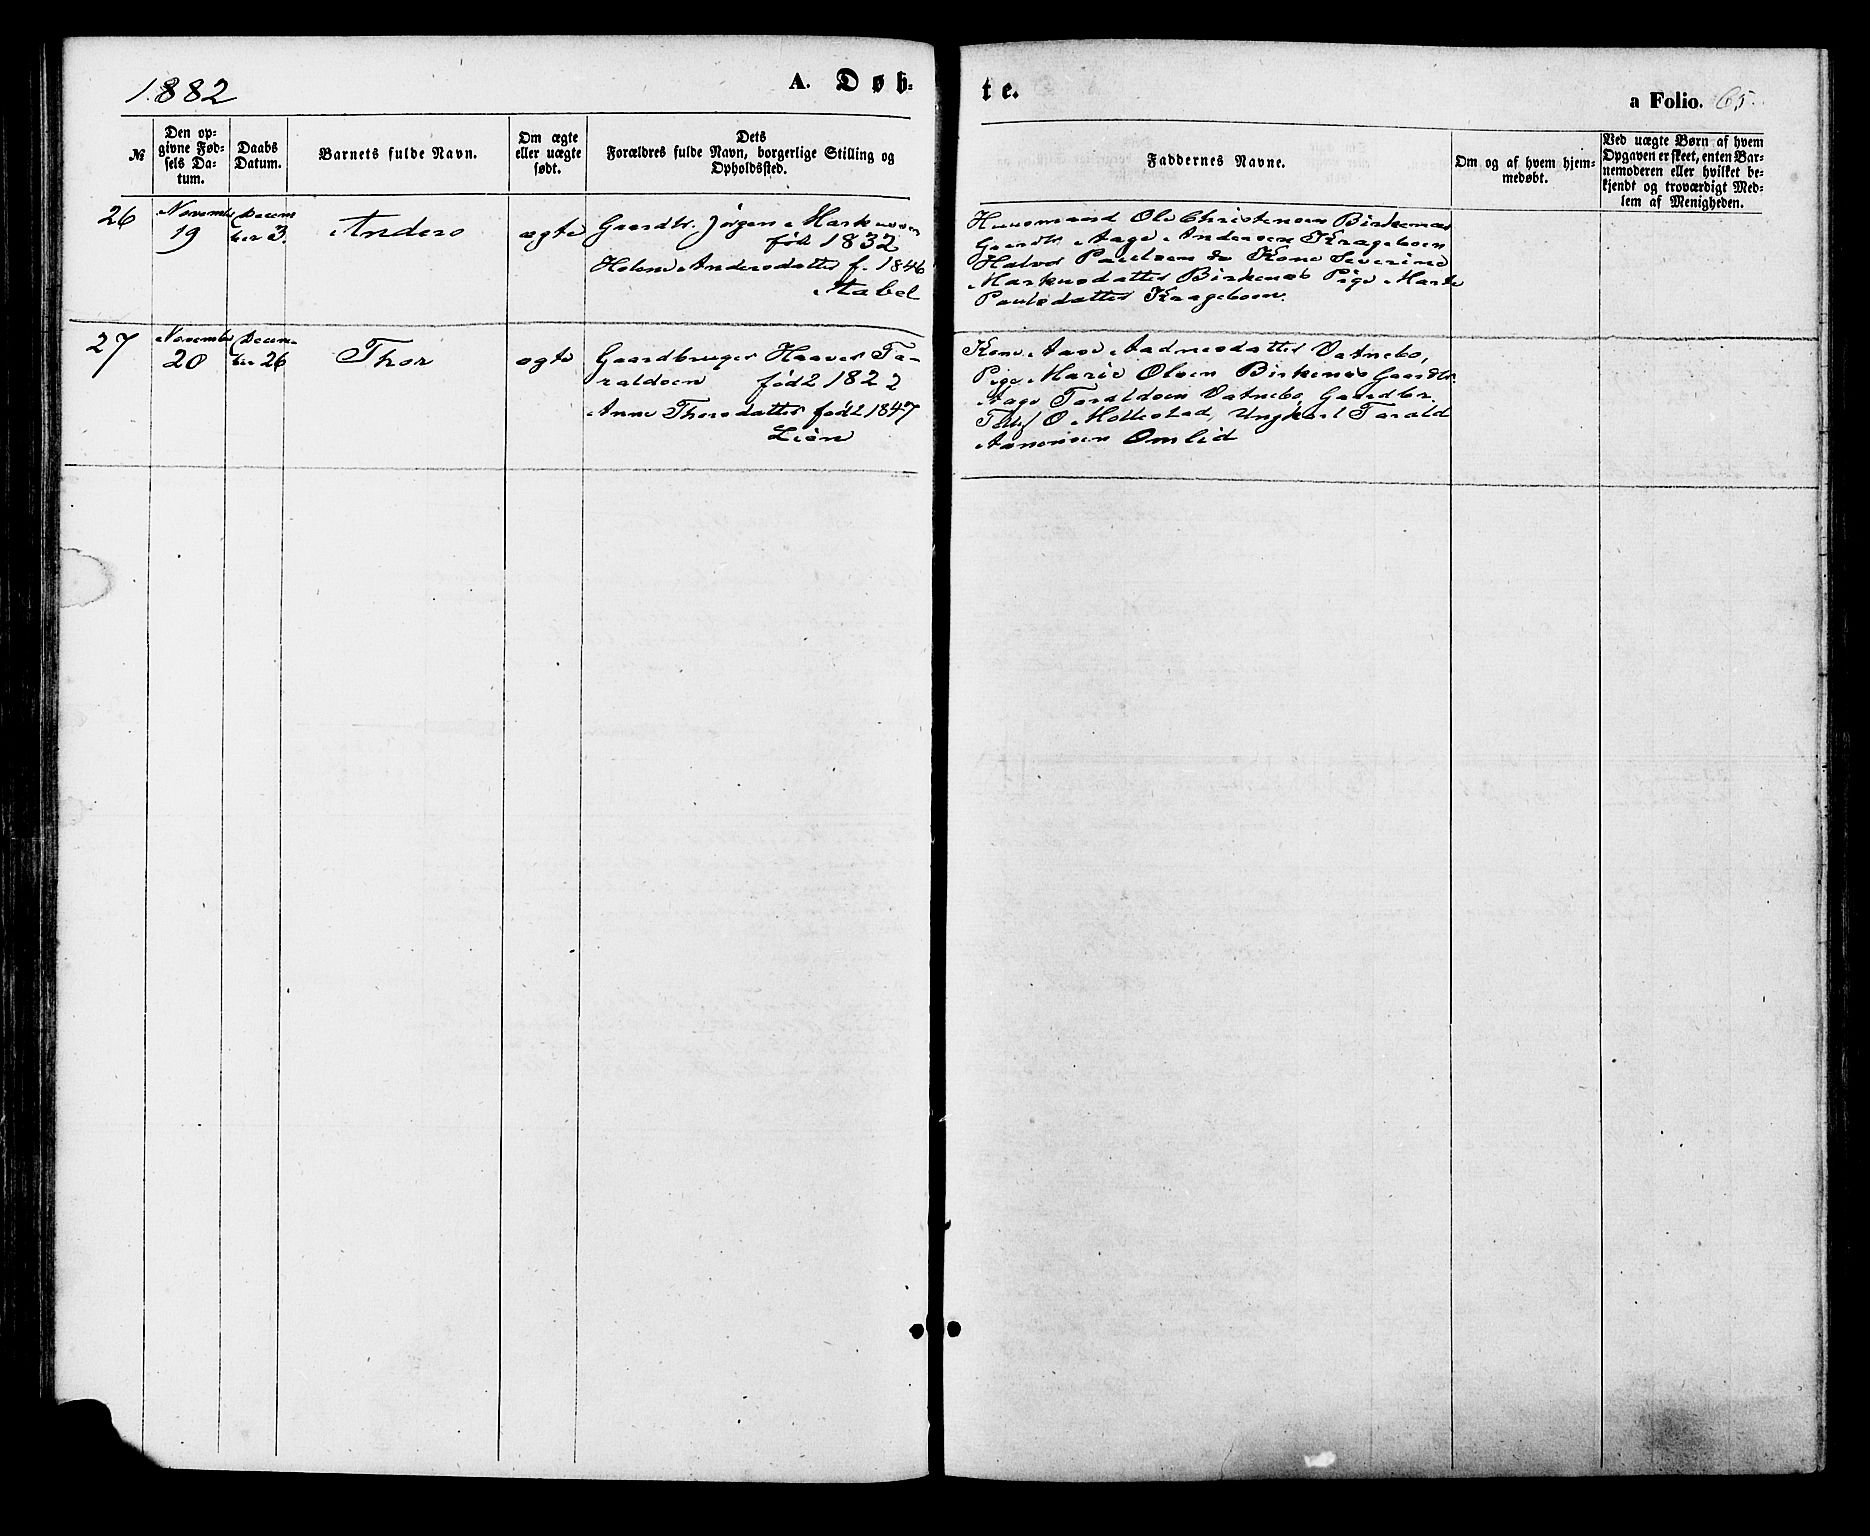 1882
A. Døb-
te.
a Folio. 65.
№
Den op-
givne Fød-
sels Da-
tum.
Daabs
Datum.
Barnets fulde Navn.
Om ægte
eller uægte
født.
Dets
Forældres fulde Navn, borgerlige Stilling og
Opholdssted.
Faddernes Navne.
Om og af hvem hjem-
medøbt.
Ved uægte Børn af hvem
Opgaven er skeet, enten Bar-
nemoderen eller hvilket be-
kjendt og troværdigt Med-
lem af Menigheden.
26
November
19
Decem
ber 3.
Anders
ægte
Gaardbr. Jørgen Markussen
født 1832
Helene Andersdatter f. 1846
Stabel
Huusmand Ole Christensen Birkenæs
Gaardbr. Aage Andersen Krageboen
Halvor Paulsen & Kone Severine
Markusdatter Birkenæs Pige Marte
Paulsdatter Krageboen.
27
November
20
Decem-
ber 26
Thor
ægte
Gaardbruger Haaver Ta-
raldsen født 1822
Anne Thorsdatter født 1847
Lien
Kone Aase Aadnesdatter Vatnebo,
Pige Marie Olsen Birkenes Gaardbr.
Aage Taraldsen Vatnebo, Gaardbr.
O. Mollestad, Ungkarl Tarald
Aanonsen Omlid